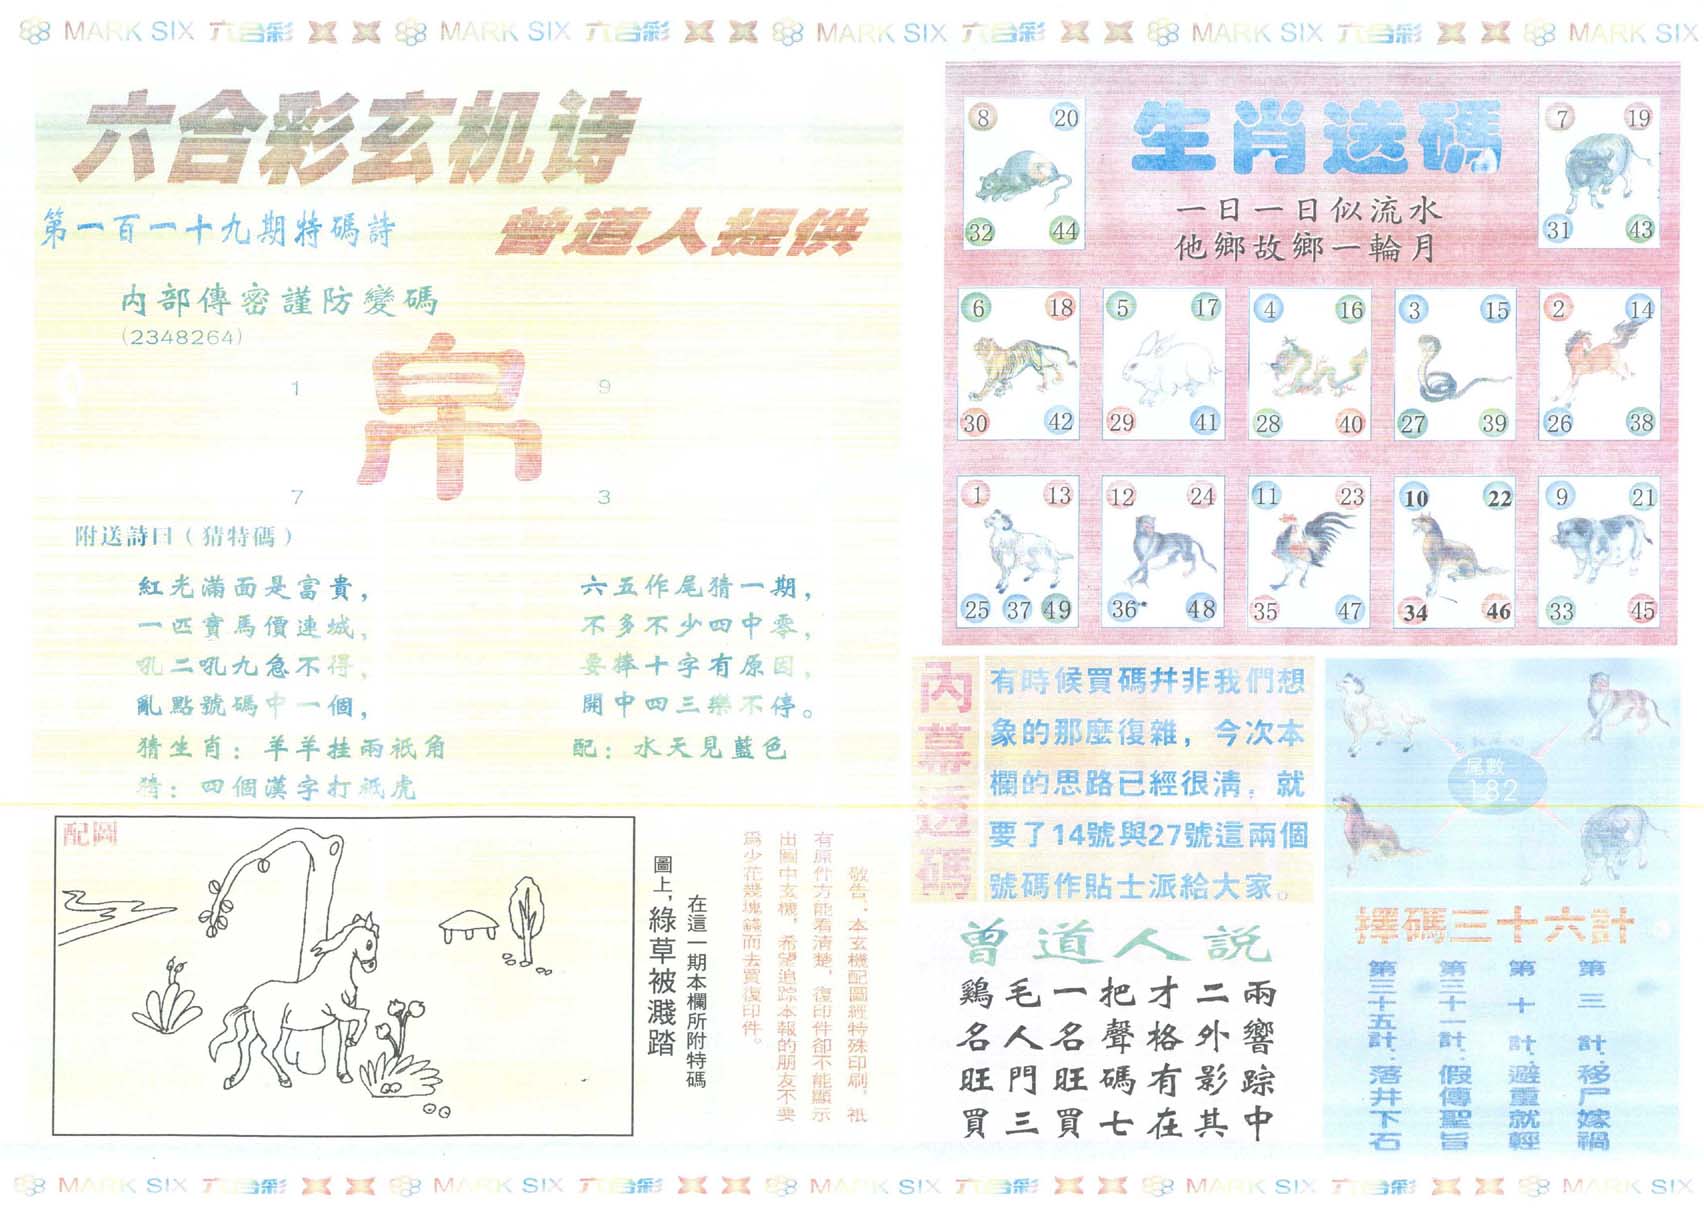 MARK SIX 六合彩 MARK SIX 六合彩 MARK SIX 六合彩 MARK SIX 六合彩 MARK SIX
六合彩玄机诗
第一百一十九期特碼詩
曾道人提供
内部傳密謹防變碼
(2348264)
1 9
帛
7 3
附送詩曰（猜特碼）
紅光滿面是富貴，
一匹寶馬價連城，
吼二吼九急不得，
亂點號碼中一個，
猜生肖：羊羊挂兩衹角
猜：四個漢字打紙虎
六五作尾猜一期，
不多不少四中零，
要捧十字有原因，
開中四三樂不停。
配：水天見藍色
配圖
在這一期本欄所附特碼
圖上，綠草被濺踏
敬告、本玄機配圖經特殊印刷，衹
有原件方能看清楚，復印件卻不能顯示
出圖中玄機，希望追踪本報的朋友不要
爲少花幾塊錢而去買復印件。
生肖送碼
一日一日似流水
他鄉故鄉一輪月
8 20
32 44
7 19
31 43
6 18
30 42
5 17
29 41
4 16
28 40
3 15
27 39
2 14
26 38
1 13
25 37 49
12 24
36 48
11 23
35 47
10 22
34 46
9 21
33 45
内幕透碼
有時候買碼并非我們想
象的那麼復雜，今次本
欄的思路已經很清，就
要了14號與27號這兩個
號碼作貼士派給大家。
尾數
182
曾道人説
鷄毛一把才二兩
名人名聲格外響
旺門旺碼有影踪
買三買七在其中
擇碼三十六計
第三計：移尸嫁禍
第十計：避重就輕
第三十一計：假傳聖旨
第三十五計：落井下石
MARK SIX 六合彩 MARK SIX 六合彩 MARK SIX 六合彩 MARK SIX 六合彩 MARK SIX